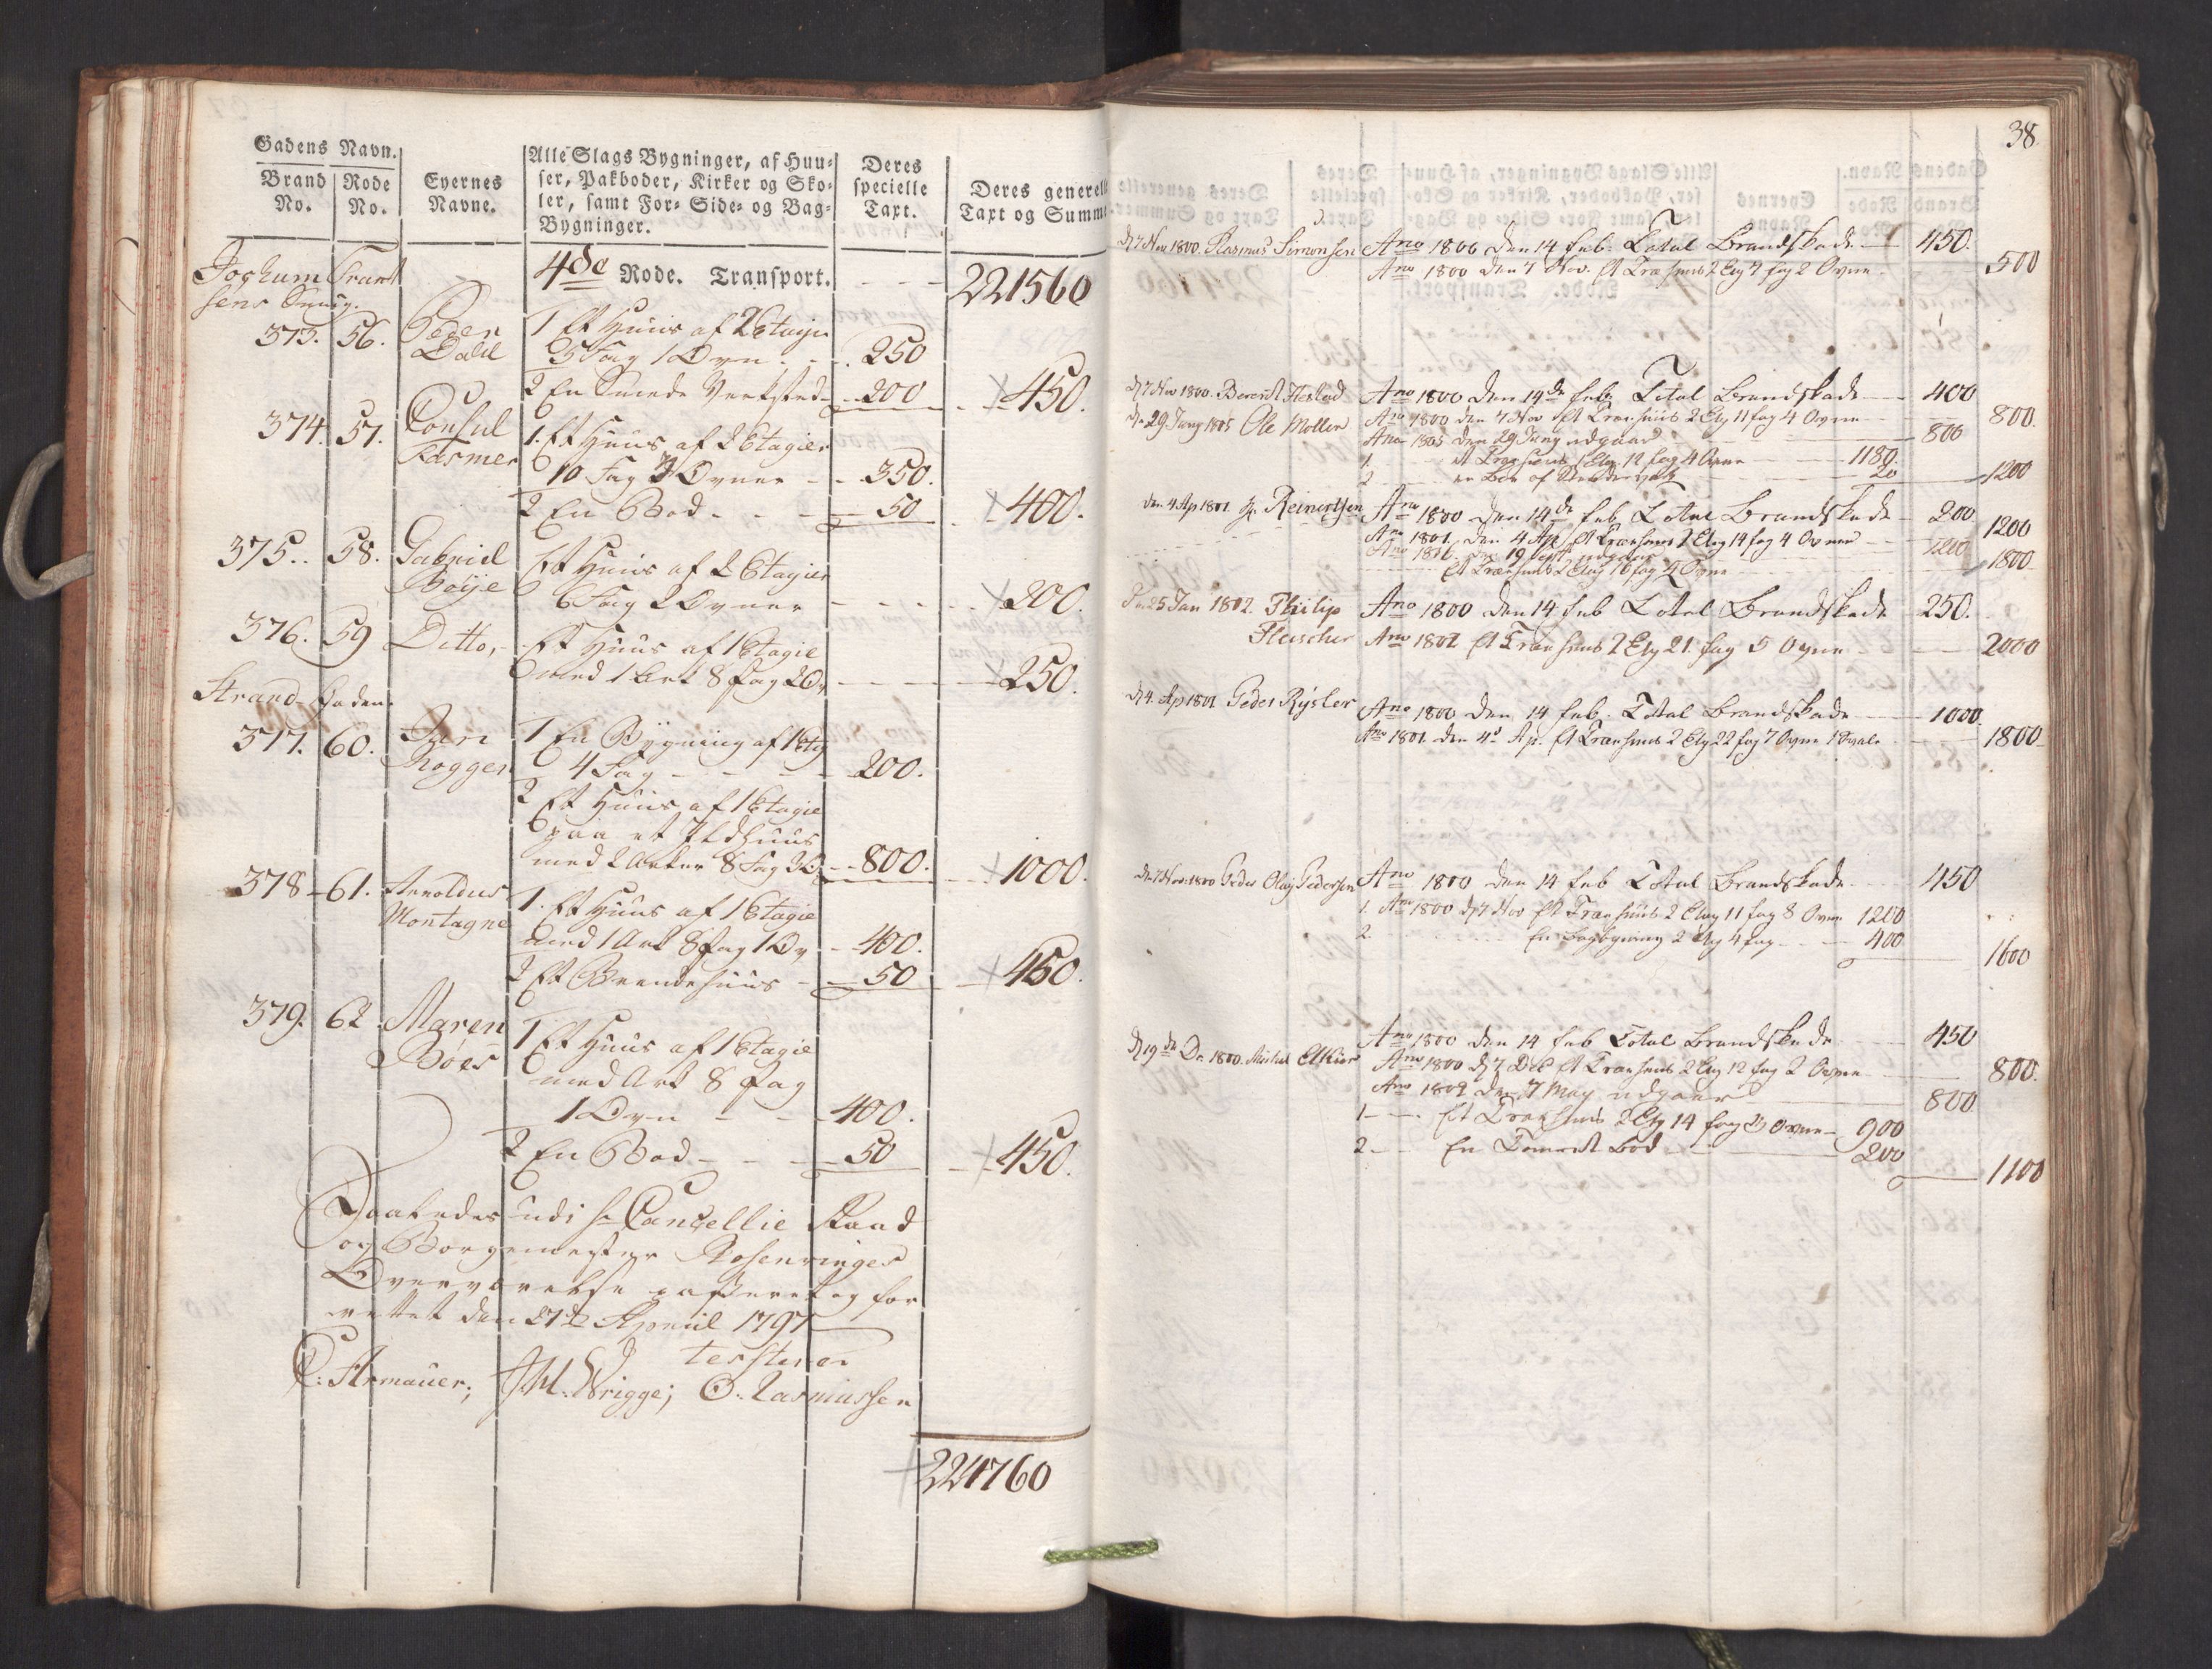 Gadens Navn.
Brand No.
Rode No.
Eyernes Navne.
Alle Slags Bygninger, af Huu-
ser, Pakboder, Kirker og Sko-
ler, samt For- Side- og Bag-
Bygninger.
Deres
specielle
Taxt.
Deres generelle
Taxt og Summe
4de Rode. Transport. 221560
373. 56. Peder 1 Et Huus af 2 Etagier
Dahl 5 Fag 1 Ovn 250
2 En Smede Verksted 200 450.
374. 57. Consul 1. Et Huus af 2 Etagier
Fasmer 10 Fag 3 Ovner 350.
2 En Bod 50 400.
375. 58. Gabriel Et Huus af 2 Etagier
Böye 6 Fag 2 Ovner 200.
376. 59 Ditto, Et Huus af 1 Etagie
med 1 Ark 8 Fag 2 Ov 250.
Strand-Gaden.
377. 60. Jan 1 En Bygning af 1 Etg
Rogger 4 Fag 200.
2 Et Huus af 1 Etagie
paa et Ildhuus
med 2 Arker 8 Fag 3 O 800. 1000.
378 61. Arnoldus 1. Et Huus af 1 Etagie
Montagne med 1 Ark 8 Fag 1 Ov 400.
2 Et Brendehuus 50 450.
379. 62 Maren 1 Et Huus af 1 Etagie
Böes med Ark 8 Fag
1 Ovn 400.
2 En Bod 50 450.
Saaledes udi Hr Cancellie Raad
og Borgemester Rosenvinges
Overværelse passeret og for
rettet den 27de April 1797
testerer
C: Armauer; J.M. Brigge; O. Rasmussen
224760
38
d 7 Nov 1800. Rasmus Simonsen Ano 1800 den 14 feb. Total Brandskade 450.
Ano 1800 den 7 Nov. Et Træhuus 2 Etg 7 fag 2 Ovne 500
d 7 Nov 1800. Berent Ano 1800 den 14de feb. Total Brandskade 400
Ano 1800 den 7 Nov Et Træhuus 2 Etg 11 fag 4 Ovne 800.
d. 29 Juny 1805 Ole Moller Ano 1805 den 29 Juny udgaar 800
1. et Træhuus Etg 12 fag 4 Ovne 1180.
2 en Bod af 20 1200
den 4 Ap 1801 Reinertsen Ano 1800 den 14de feb Total Brandskade 200
Ano 1801. den 4 Ap Et Træhuus 2 Etg 14 fag 4 Ovne 1200
den 19 Sept udgaar 1200
Et Træhuus 2 Etag 16 fag 4 Ovne 1800
Jan 1802. Philip Ano 1800 den 14 feb Total Brandskade 250.
Fleischer Ano 1802 Et Træhuus 2 Etg 21 fag 5 Ovne 2000
d 4. Ap 1801 Peder Rysler Ano 1800 den 14 feb. Total Brandskade 1000.
Ano 1801 den 4de Ap. Et Træhuus 2 Etg 22 fag 7 Ovne 1 Svale 1800
d. 7 Nov 1800 Peder Olay Pedersen Ano 1800 den 14 feb Total Brandskade 450
1. Ano 1800 d 7 Nov Et Træhuus 2 Etag 11 fag 8 Ovne 1200
2. En Bagbygning 2 Etg 4 fag 400
1600
Ano 1800 den 14 feb Total Brandskade 450
d 19de De. 1800. Michel Elkier Ano 1800 d 7 Dec Et Træhuus 2 Etg 12 fag 2 Ovne 800.
Ano 1802 den 7 May udgaar 800
1 Et Træhuus 2 Etg 14 fag 3 Ovne 900
2 En Bod 200
1100